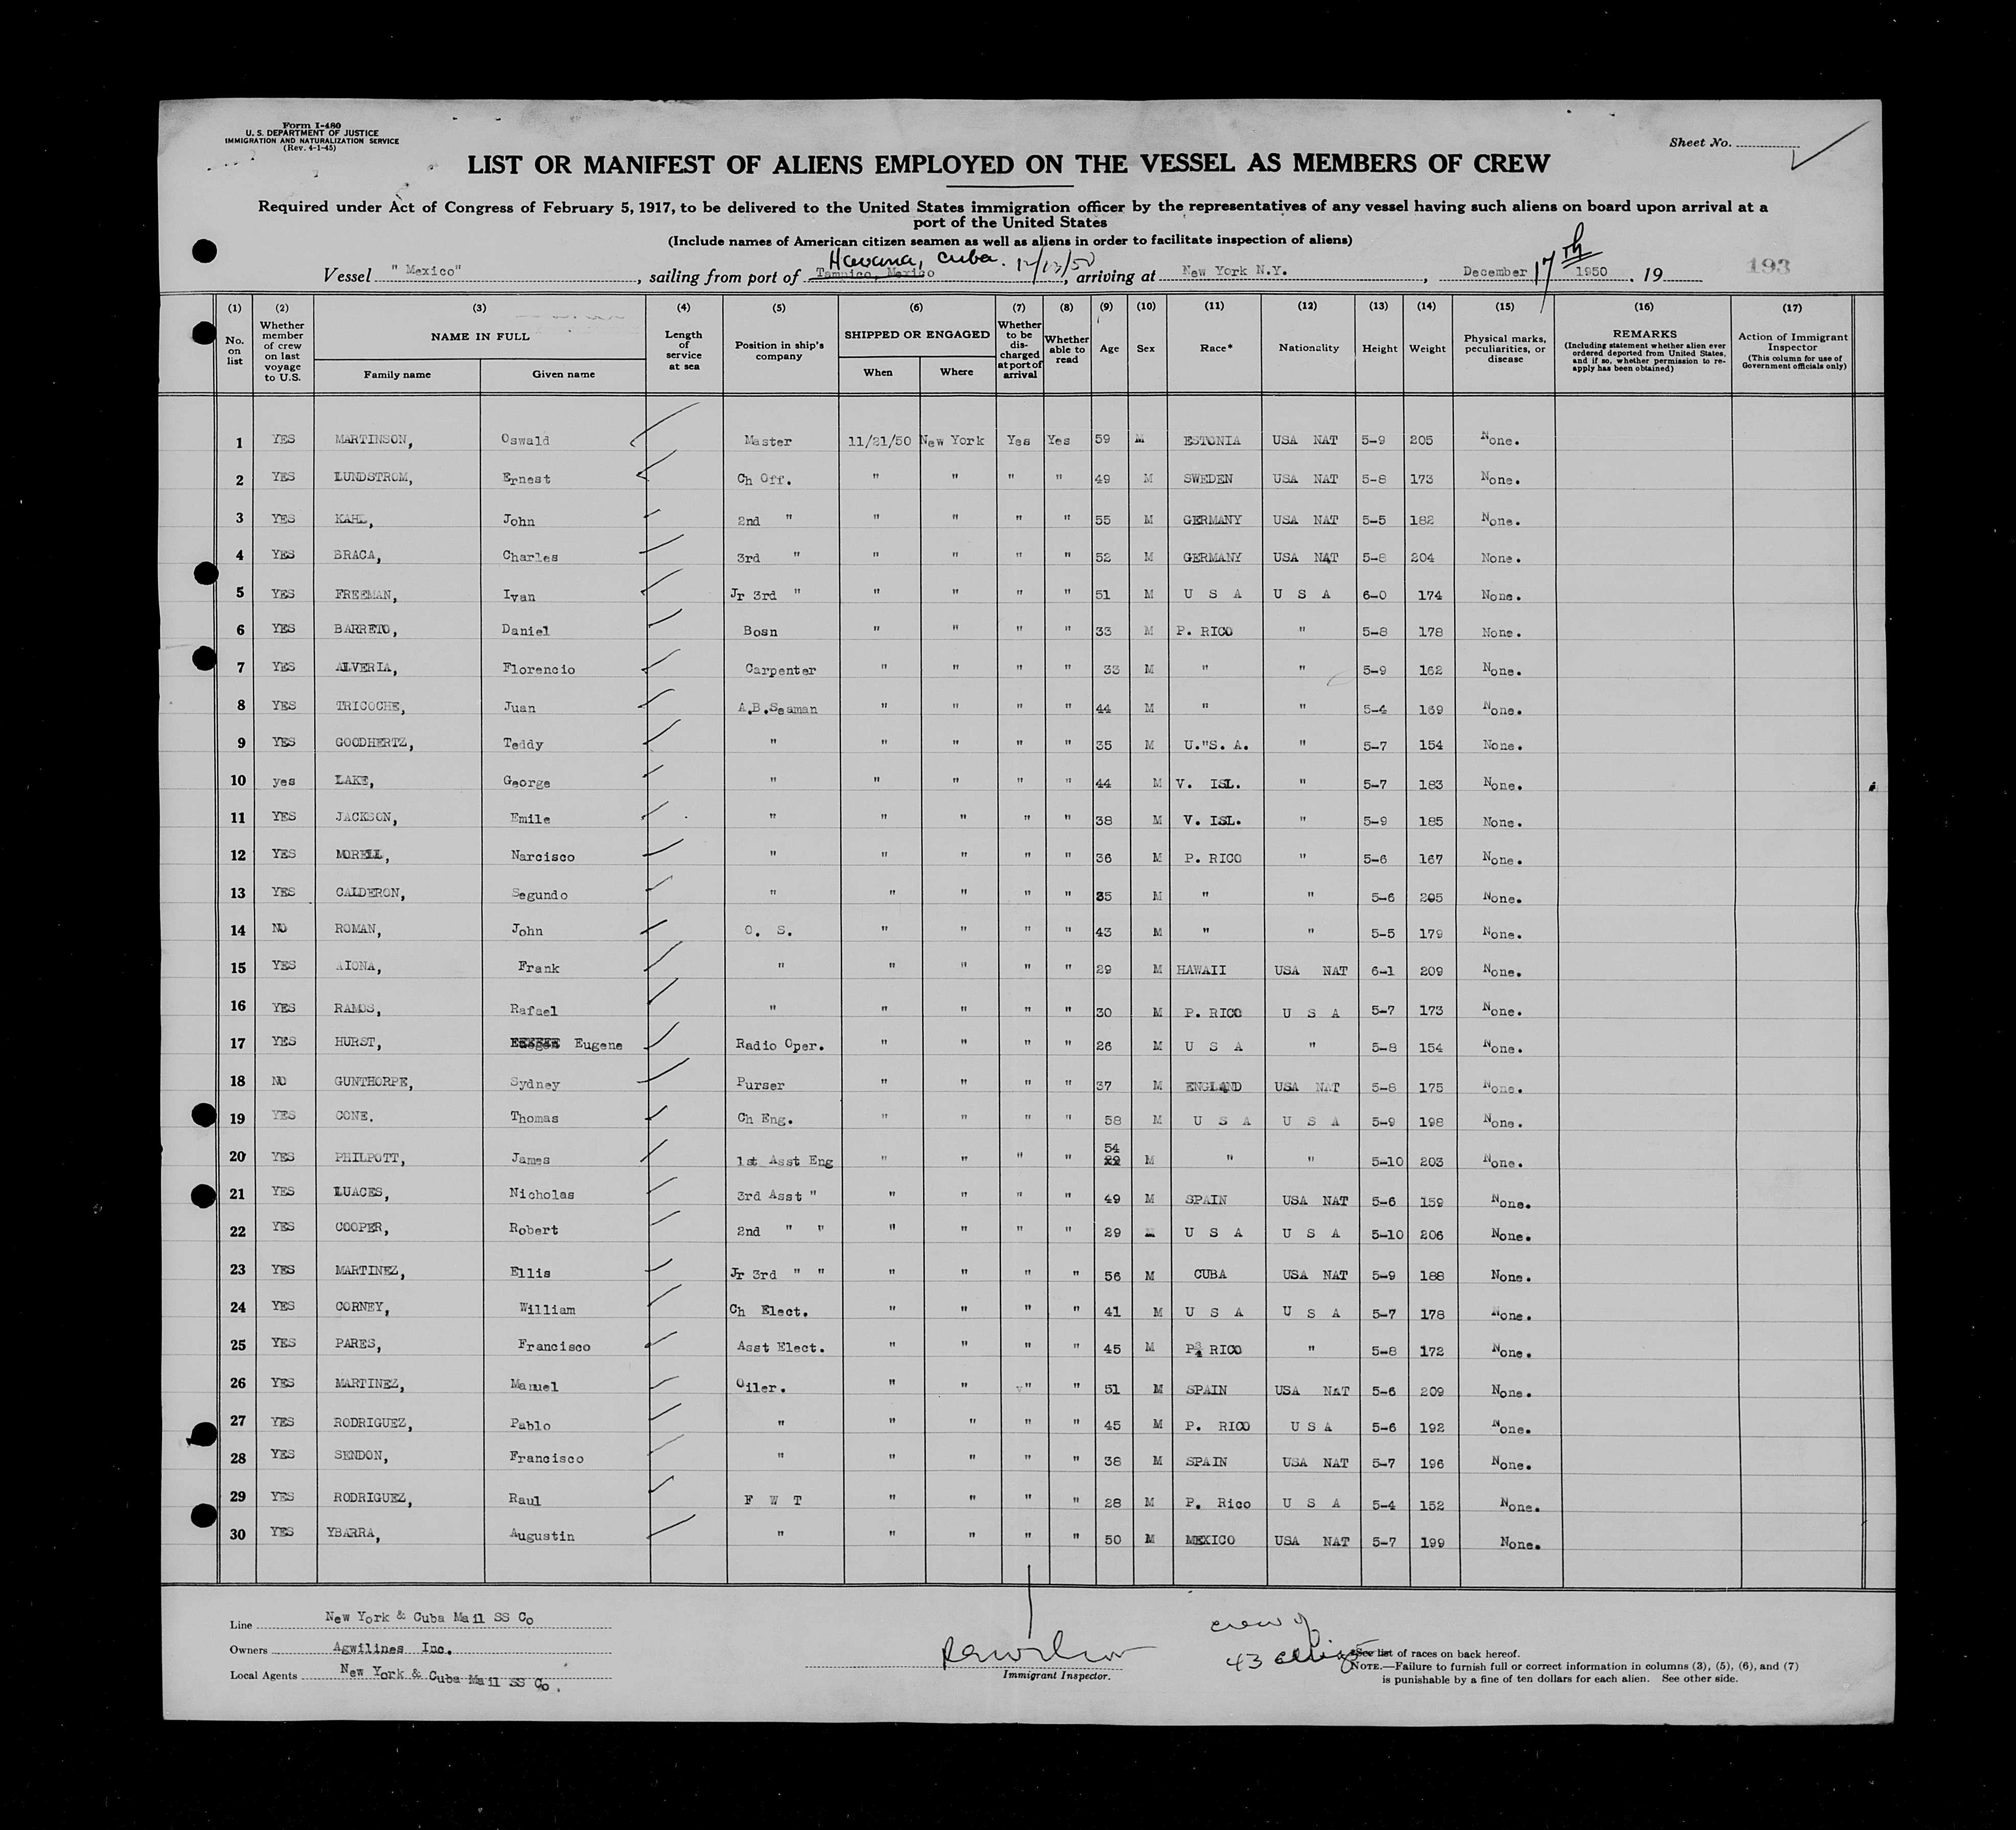 Form I-480
U. S. DEPARTMENT OF JUSTICE
IMMIGRATION AND NATURALIZATION SERVICE
(Rev. 4-1-45)
Sheet No.
LIST OR MANIFEST OF ALIENS EMPLOYED ON THE VESSEL AS MEMBERS OF CREW
Required under Act of Congress of February 5, 1917, to be delivered to the United States immigration officer by the representatives of any vessel having such aliens on board upon arrival at a
port of the United States
(Include names of American citizen seamen as well as aliens in order to facilitate inspection of aliens)
Havana, Cuba. 12/13/50
Vessel "Mexico", sailing from port of Tampico, Mexico, arriving at New York N.Y., December 17th 1950, 19 193
(1) (2) (3) (4) (5) (6) (7) (8) (9) (10) (11) (12) (13) (14) (15) (16) (17)
No. on list Whether member of crew on last voyage to U.S. NAME IN FULL Family name Given name Length of service at sea Position in ship's company SHIPPED OR ENGAGED When Where Whether to be discharged at port of arrival Whether able to read Age Sex Race* Nationality Height Weight Physical marks, peculiarities, or disease REMARKS (Including statement whether alien ever ordered deported from United States, and if so, whether permission to re-apply has been obtained) Action of Immigrant Inspector (This column for use of Government officials only)
1 YES MARTINSON, Oswald Master 11/21/50 New York Yes Yes 59 M ESTONIA USA NAT 5-9 205 None.
2 YES LUNDSTROM, Ernest Ch Off. " " " " 49 M SWEDEN USA NAT 5-8 173 None.
3 YES KAHL, John 2nd " " " " " 55 M GERMANY USA NAT 5-5 182 None.
4 YES BRACA, Charles 3rd " " " " " 52 M GERMANY USA NAT 5-8 204 None.
5 YES FREEMAN, Ivan Jr 3rd " " " " " 51 M U S A U S A 6-0 174 None.
6 YES BARRETO, Daniel Bosn " " " " 33 M P. RICO " 5-8 178 None.
7 YES ALVERIA, Florencio Carpenter " " " " 33 M " " 5-9 162 None.
8 YES TRICOCHE, Juan A.B.Seaman " " " " 44 M " " 5-4 169 None.
9 YES GOODHERTZ, Teddy " " " " " 35 M U."S. A. " 5-7 154 None.
10 yes LAKE, George " " " " " 44 M V. ISL. " 5-7 183 None.
11 YES JACKSON, Emile " " " " " 38 M V. ISL. " 5-9 185 None.
12 YES MORELL, Narcisco " " " " " 36 M P. RICO " 5-6 167 None.
13 YES CALDERON, Segundo " " " " " 35 M " " 5-6 205 None.
14 NO ROMAN, John O. S. " " " " 43 M " " 5-5 179 None.
15 YES AIONA, Frank " " " " " 29 M HAWAII USA NAT 6-1 209 None.
16 YES RAMOS, Rafael " " " " " 30 M P. RICO U S A 5-7 173 None.
17 YES HURST, Eugene Radio Oper. " " " " 26 M U S A " 5-8 154 None.
18 NO GUNTHORPE, Sydney Purser " " " " 37 M ENGLAND USA NAT 5-8 175 None.
19 YES CONE. Thomas Ch Eng. " " " " 58 M U S A U S A 5-9 198 None.
20 YES PHILPOTT, James 1st Asst Eng " " " " 54 M " " 5-10 203 None.
21 YES LUACES, Nicholas 3rd Asst " " " " " 49 M SPAIN USA NAT 5-6 159 None.
22 YES COOPER, Robert 2nd " " " " " " 29 M U S A U S A 5-10 206 None.
23 YES MARTINEZ, Ellis Jr 3rd " " " " " " 56 M CUBA USA NAT 5-9 188 None.
24 YES CORNEY, William Ch Elect. " " " " 41 M U S A U S A 5-7 178 None.
25 YES PARES, Francisco Asst Elect. " " " " 45 M P. RICO " 5-8 172 None.
26 YES MARTINEZ, Manuel Oiler. " " " " 51 M SPAIN USA NAT 5-6 209 None.
27 YES RODRIGUEZ, Pablo " " " " " 45 M P. RICO U S A 5-6 192 None.
28 YES SENDON, Francisco " " " " " 38 M SPAIN USA NAT 5-7 196 None.
29 YES RODRIGUEZ, Raul F W T " " " " 28 M P. Rico U S A 5-4 152 None.
30 YES YBARRA, Augustin " " " " " 50 M MEXICO USA NAT 5-7 199 None.
Line New York & Cuba Mail SS Co
Owners Agwilines Inc.
Local Agents New York & Cuba Mail SS Co.
Immigrant Inspector.
crew of
43
*See list of races on back hereof.
NOTE.—Failure to furnish full or correct information in columns (3), (5), (6), and (7)
is punishable by a fine of ten dollars for each alien. See other side.